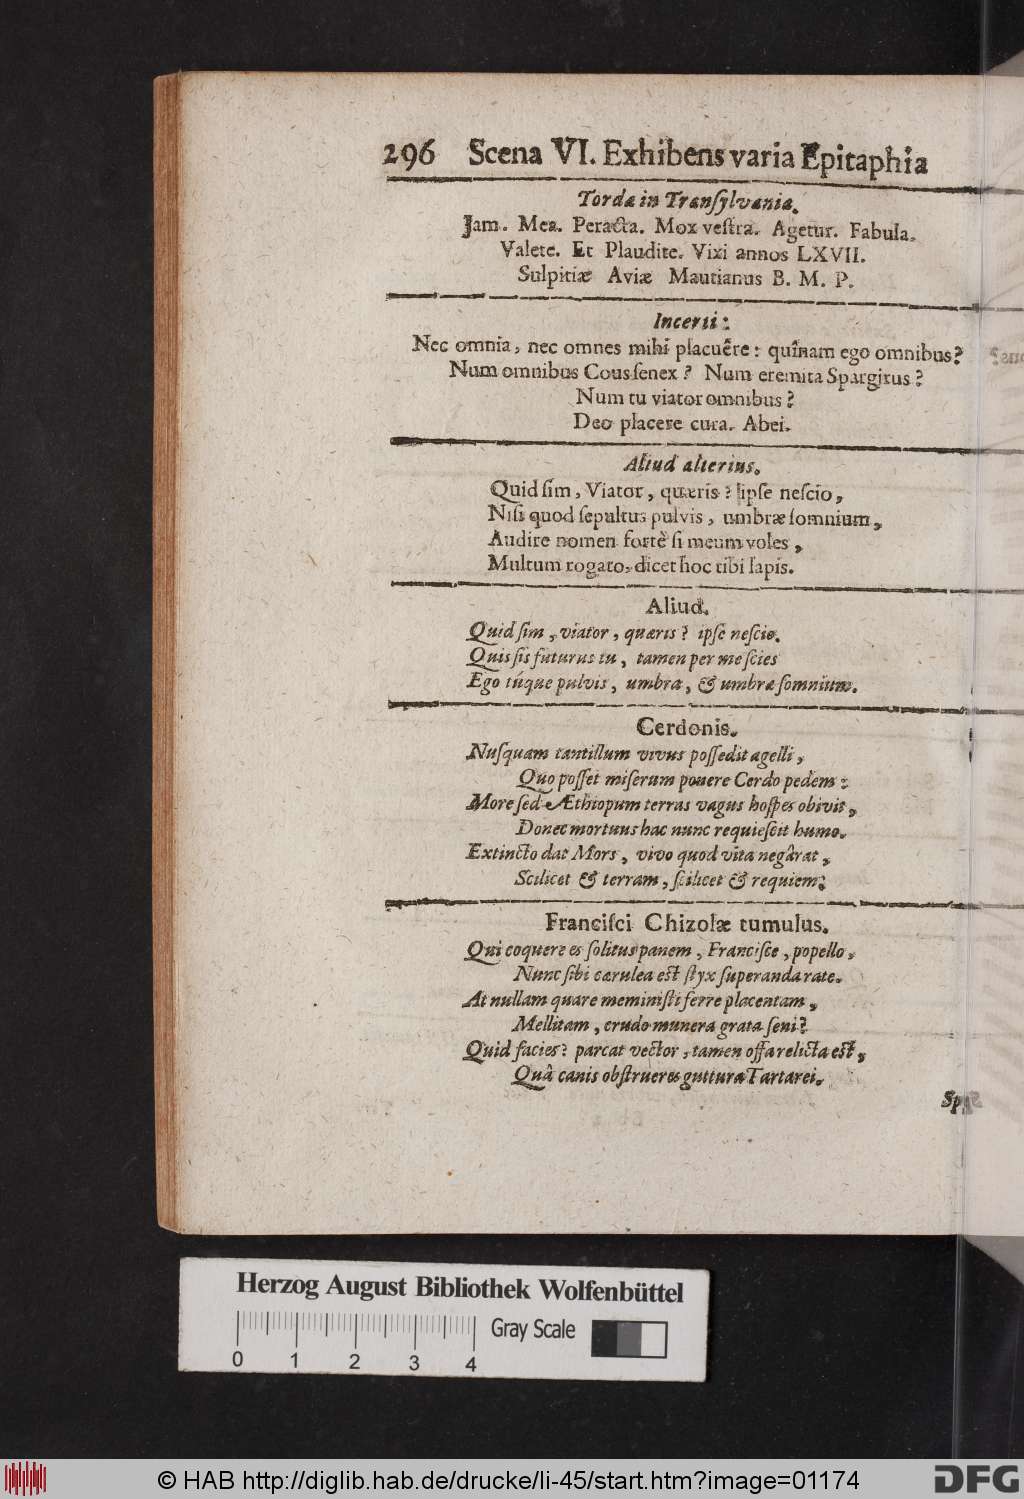 296 Scena VI. Exhibens varia Epitaphia
Torda in Tranſylvania.
Jam. Mea. Peracta. Mox veſtra. Agetur. Fabula.
Valete. Et Plaudite. Vixi annos LXVII.
Sulpitiæ Aviæ Mautianus B. M. P.
Incerti:
Nec omnia, nec omnes mihi placuêre: quînam ego omnibus?
Num omnibus Cous ſenex? Num eremita Spargirus?
Num tu viator omnibus?
Deo placere cura. Abei.
Aliud alterius.
Quid ſim, Viator, quæris? Iipſe neſcio,
Niſi quod ſepultus pulvis, umbræ ſomnium,
Audire nomen fortè ſi meum voles,
Multum rogato, dicet hoc tibi lapis.
Aliud.
Quid ſim, viator, quæris? ipſe neſcio.
Quis ſis futurus tu, tamen per me ſcies
Ego túque pulvis, umbra, & umbræ ſomnium.
Cerdonis.
Nuſquam tantillum vivus poſſedit agelli,
Quo poſſet miſerum ponere Cerdo pedem:
More ſed Æthiopum terras vagus hoſpes obivit,
Donec mortuus hac nunc requieſcit humo.
Extincto dat Mors, vivo quod vita negârat,
Scilicet & terram, ſcilicet & requiem.
Franciſci Chizolæ tumulus.
Qui coquere es ſolitus panem, Franciſce, popello,
Nunc ſibi cærulea eſt ſtyx ſuperanda rate.
At nullam quare meminiſti ferre placentam,
Mellitam, crudo munera grata ſeni?
Quid facies? parcat vector, tamen offa relicta eſt,
Quâ canis obſtrueres guttura Tartarei.
Herzog August Bibliothek Wolfenbüttel
Gray Scale
0 1 2 3 4
© HAB http://diglib.hab.de/drucke/li-45/start.htm?image=01174
DFG